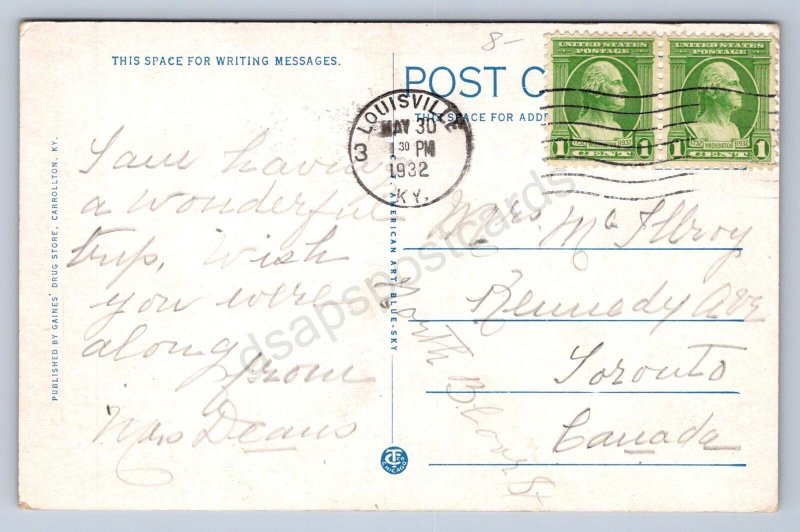 8-
THIS SPACE FOR WRITING MESSAGES.
POST C
THIS SPACE FOR ADD
UNITED STATES
POSTAGE
1 CENT 1
UNITED STATES
POSTAGE
1732 WASHINGTON 1932
1 CENT 1
LOUISVILLE
3
MAY 30
30 PM
1932
KY.
I am having
a wonderful
trip. Wish
you were
along from
Mrs Deans
PUBLISHED BY GAINES' DRUG STORE, CARROLLTON, KY.
AMERICAN ART BLUE-SKY
Mrs. McIllroy
Kennedy Ave
Toronto
Canada
North Bloor St
CHICAGO
dsapspostcards